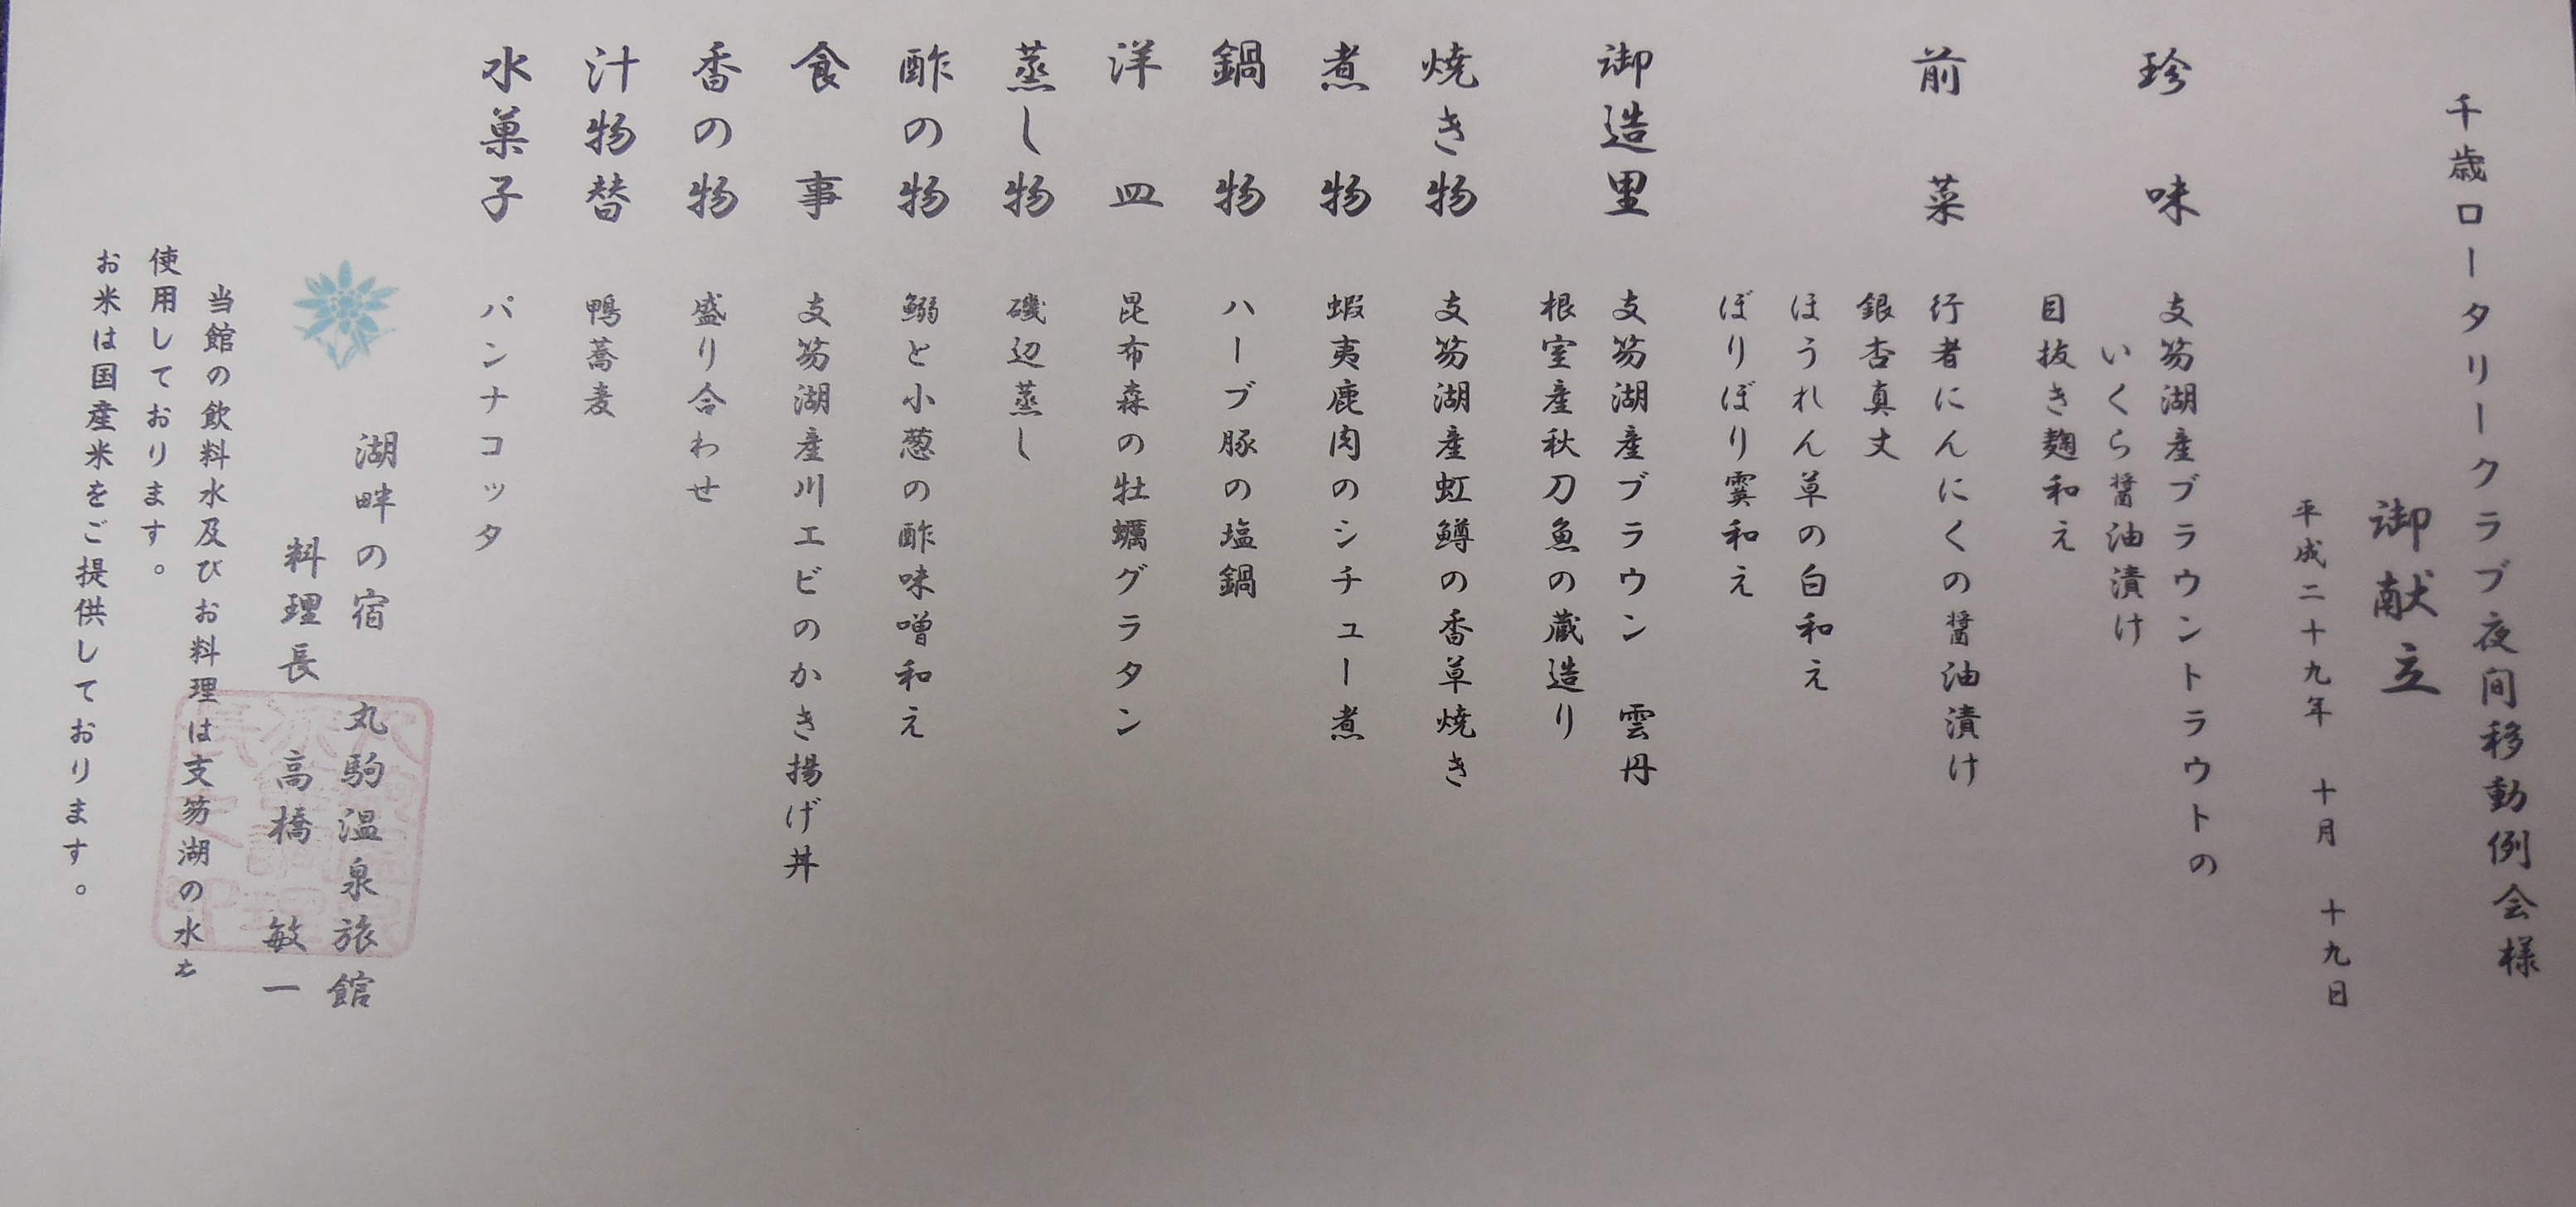 千歳ロータリークラブ夜間移動例会様
御献立
平成二十九年 十月 十九日
珍味 支笏湖産ブラウントラウトの
いくら醤油漬け
目抜き麹和え
前菜 行者にんにくの醤油漬け
銀杏真丈
ほうれん草の白和え
ぼりぼり霙和え
御造里 支笏湖産ブラウン 雲丹
根室産秋刀魚の蔵造り
焼き物 支笏湖産虹鱒の香草焼き
煮物 蝦夷鹿肉のシチュー煮
鍋物 ハーブ豚の塩鍋
洋皿 昆布森の牡蠣グラタン
蒸し物 磯辺蒸し
酢の物 鰯と小葱の酢味噌和え
食事 支笏湖産川エビのかき揚げ丼
香の物 盛り合わせ
汁物替 鴨蕎麦
水菓子 パンナコッタ
湖畔の宿 丸駒温泉旅館
料理長 高橋 敏一
当館の飲料水及びお料理は支笏湖の水を
使用しております。
お米は国産米をご提供しております。